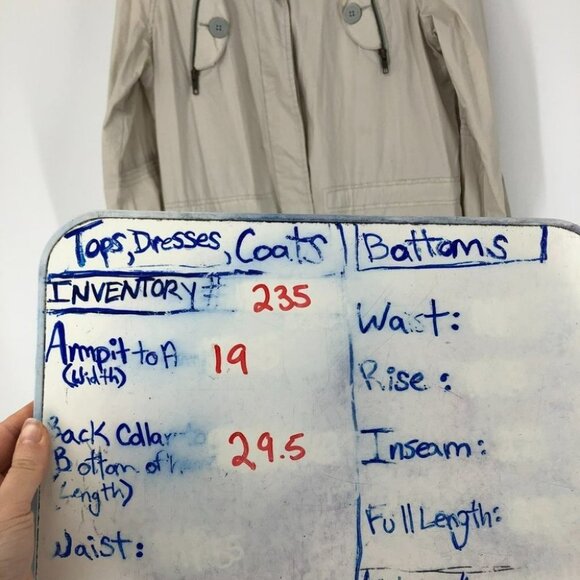 Tops, Dresses, Coats
INVENTORY # 235
Armpit to A 19
(Width)
Back Collar to 29.5
Bottom of
(Length)
Waist:
Bottoms
Waist:
Rise:
Inseam:
Full Length: